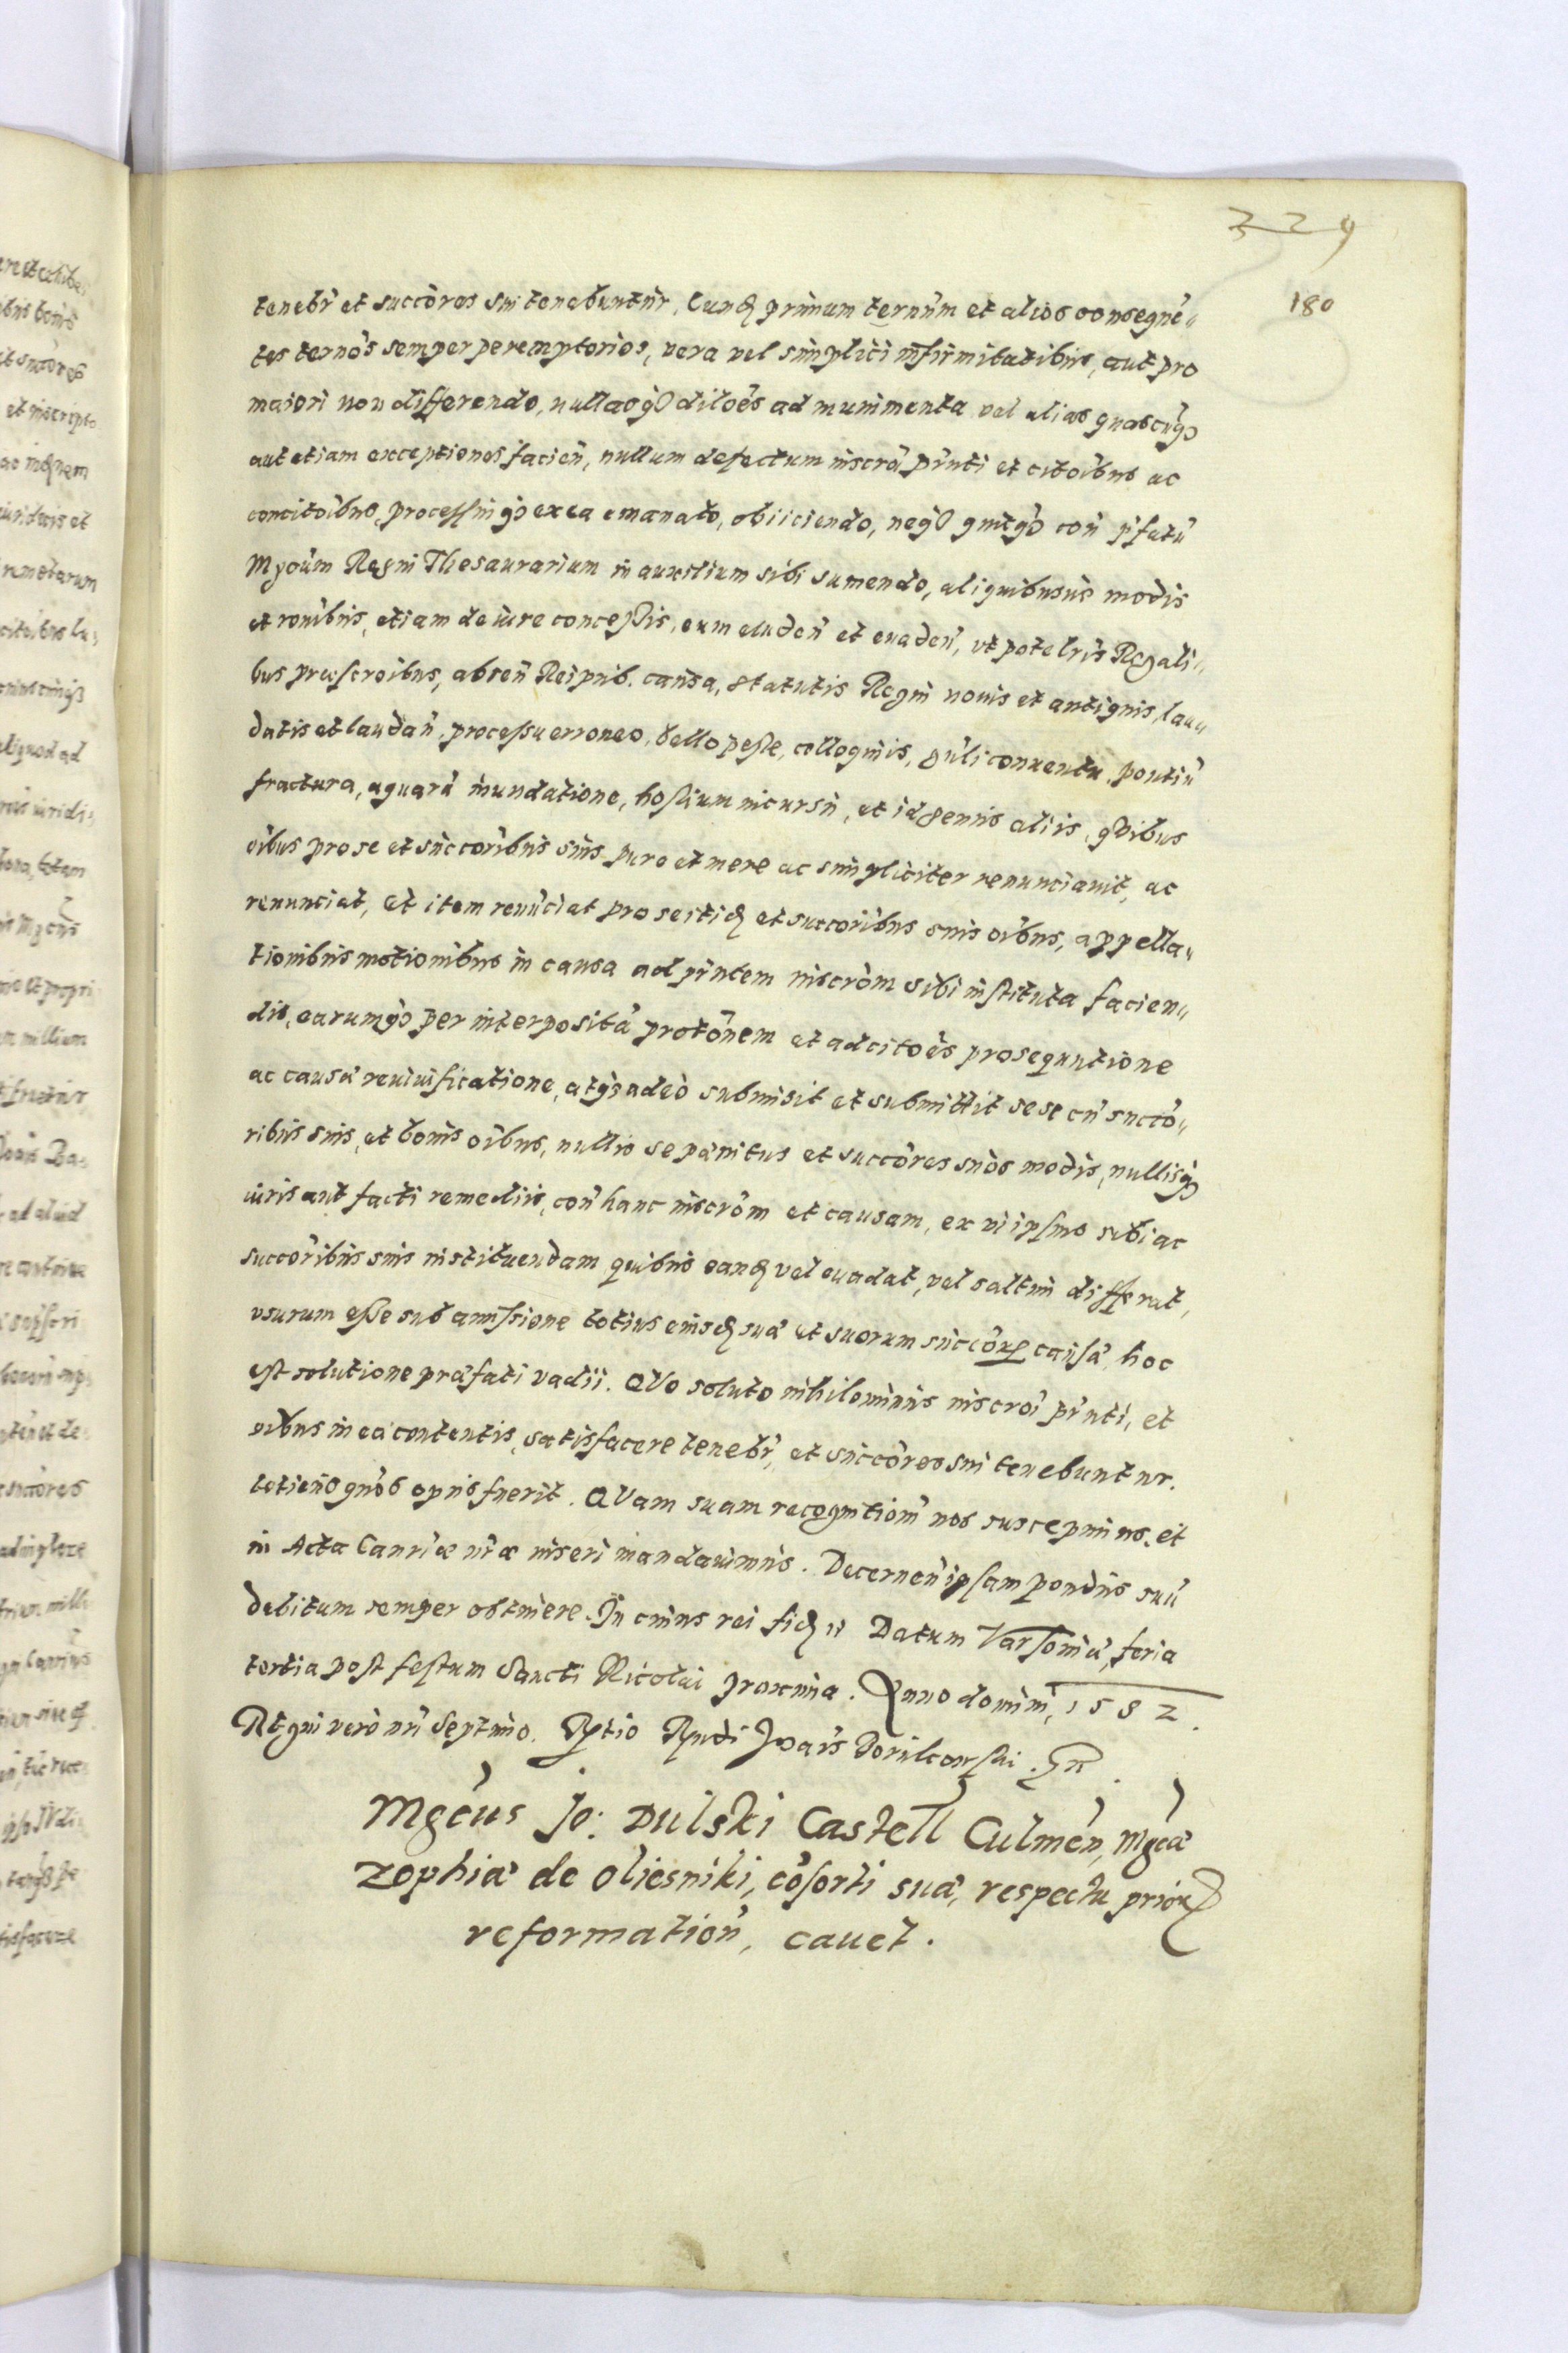 329
180
tenebr̃ et succõres sui tenebuntur, Eundẽ primum ternũm et alios conseque͂„
tes ternõs semper peremptorios, vera vel simplici infirmitatibus, aut pro
maiori non differendo, nullasq3 dilões ad munimenta vel alias quascũq3
aut etiam exceptiones facieñ, nullum defectum inscrõ pñti et citõibus ac
concitõibus, processuiq3 ex ea emanato, obiiciendo, neq3 quicq3 coñ p̃fatũ
Mgcum Regni Thesaurarium in auxilium sibi sumendo, aliquibusuis modis
et rõnibus, etiam de iure concessis, eum eludeñ et euadeñ, vt pote lr̃is Regali„
bus præscrõibus, abseñ Reipub. causa, statutis Regni nouis et antiquis, lau„
datis et laudañ, processu erroneo, bello peste, colloquiis, gñli conuentu, pontiũ
fractura, aquarũ inundatione, hostium incursu, et id genus aliis, quibus
oĩbus pro se et succõribus suis pure et mere ac simpliciter renunciauit, ac
renunciat, et item renũciat pro se itidẽ et succõribus suis oĩbus, appella„
tionibus motionibus in causa ad pñtem inscrõm sibi instituta facien„
dis, earumq3 per interpositã protõnem et ad citões prosequutione
ac causæ reuiuificatione, atq3 adeò submisit et submittit sese cũ succõ„
ribus suis, et bonis oĩbus, nullis se pœnitus et succõres suos modis, nullisq3
iuris aut facti remediis, coñ hanc inscrõm et causam, ex vi ipsius sibi ac
succõribus suis instituendam quibus eandẽ vel euadat, vel saltim differat,
vsurum esse sub amissione totius eiusdẽ suæ et suorum succõrꝝ causæ, hoc
est solutione præfati vadii. Quo soluto nihilominus inscrõi pñti, et
oĩbus in ea contentis, satisfacere tenebr̃, et succõres sui tenebuntur.
totieñs quõs opus fuerit. Quam suam recognitioñ nos suscepimus, et
in Acta Canriæ nr̃æ inseri mandauimus. Decerneñ ipsam pondus suũ
debitum semper obtinere. In cuius rei fidẽ „ Datum Varsouiæ, feria
tertia post festum Sancti Nicolai proxima. Anno domini, 1582.
Regni verò nr̃i Septimo. Rptio Rpndi Joañs Borukowski.
Mgcus Jo: Dulski Castell Culmeñ, Mgcæ
Zophiæ de Oliesniki, cõsorti suæ, respectu priorꝝ
reformatioñ, cauet.